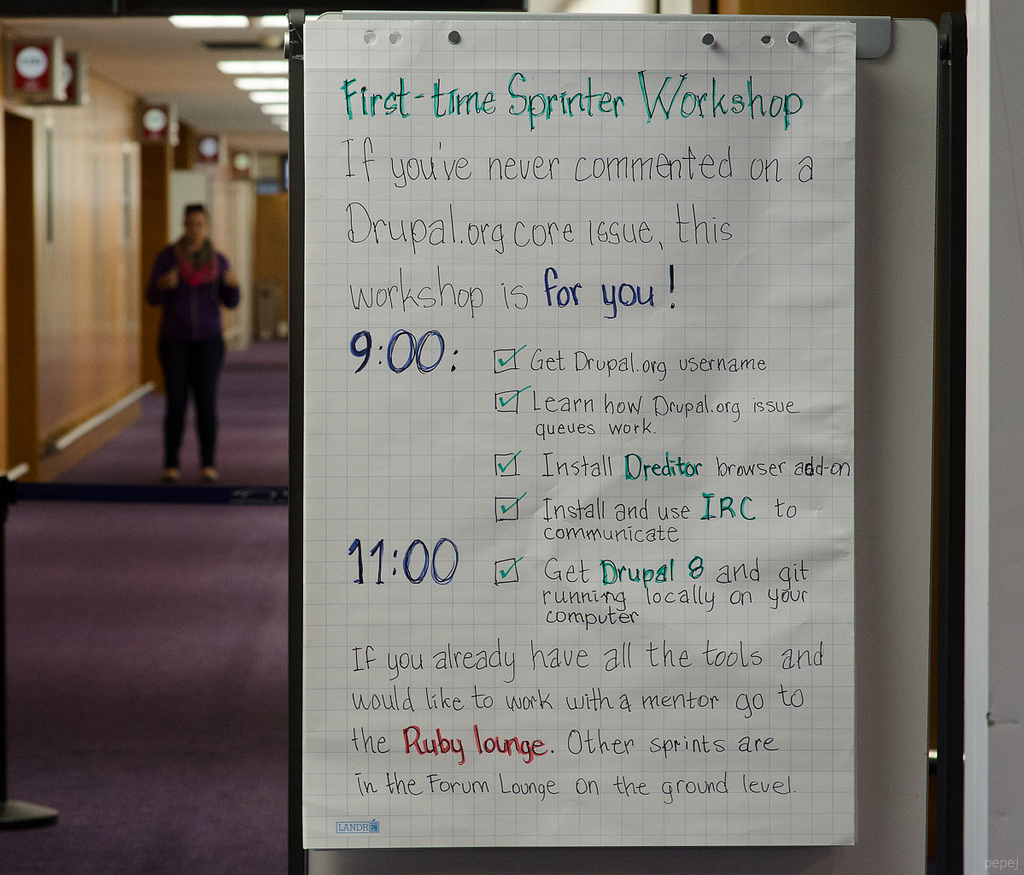 First-time Sprinter Workshop
If you've never commented on a
Drupal.org core issue, this
workshop is for you!
9:00:
☑ Get Drupal.org username
☑ Learn how Drupal.org issue
queues work.
☑ Install Dreditor browser add-on
☑ Install and use IRC to
communicate
11:00
☑ Get Drupal 8 and git
running locally on your
computer
If you already have all the tools and
would like to work with a mentor go to
the Ruby lounge. Other sprints are
in the Forum Lounge on the ground level.
LANDRÉ
pepej